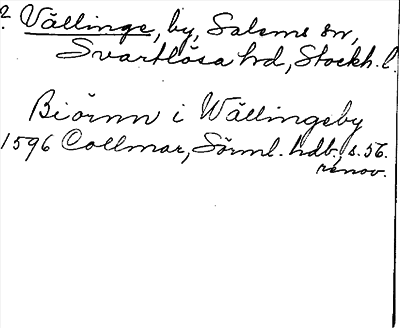 ? Vällinge, by, Salems sn,
Svartlösa hd, Stockh. l.
Biörnn i Wällingeby
1596 Collmar, Sörml. hdb., s. 56.
renov.